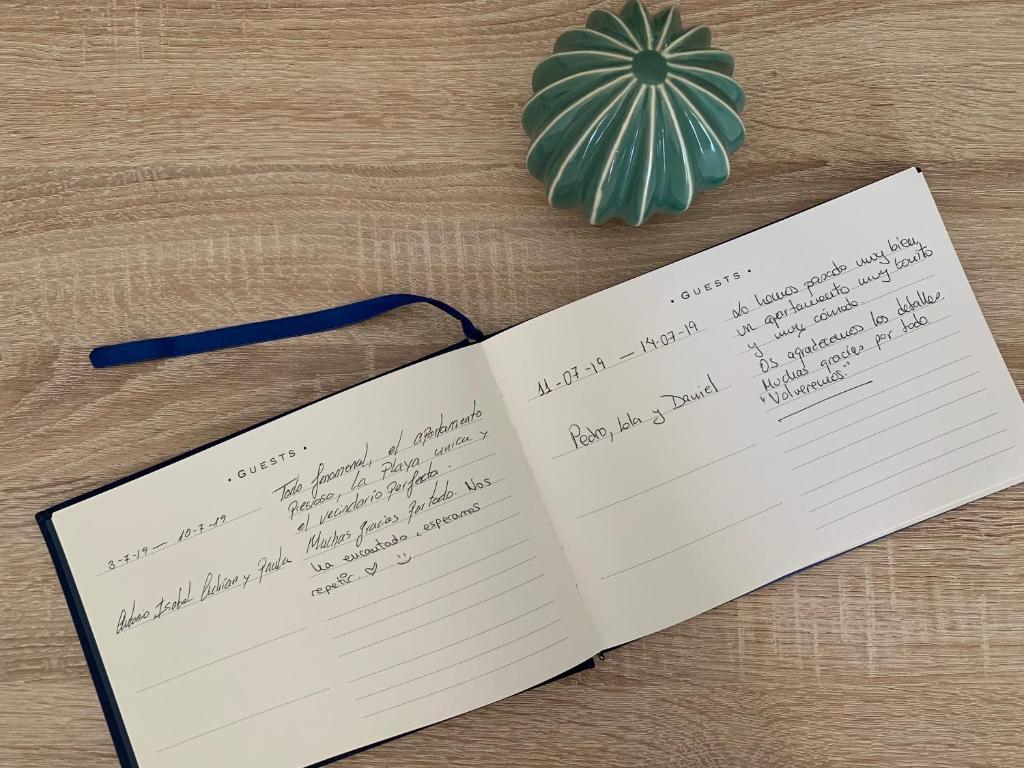 • GUESTS •
3-7-19 — 10-7-19
Antonio Isabel Adrian y Paula
Todo fenomenal, el apartamento
precioso, la Playa unica y
el vecindario perfecto.
Muchas gracias por todo. Nos
ha encantado, esperamos
repetir. ♡ ☺
• GUESTS •
11-07-19 — 14-07-19
Pedro, Lola y Daniel
Lo hemos pasado muy bien,
un apartamento muy bonito
y muy cómodo.
Os agradecemos los detalles.
Muchas gracias por todo
"Volveremos"